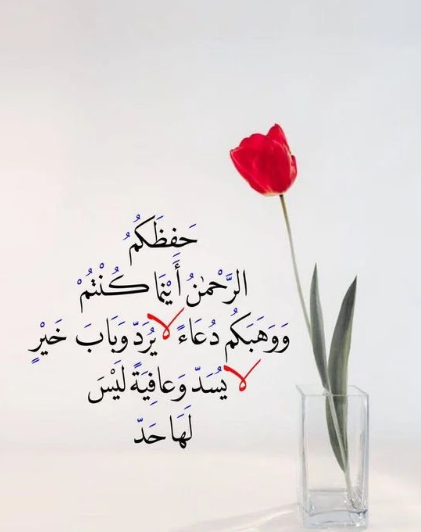 حَفِظَكُمُ
الرَّحْمٰنُ أَيْنَمَا كُنْتُمْ
وَوَهَبَكُم دُعَاءً لَا يُرَدّ وَبَابَ خَيْرٍ
لَا يُسَدّ وَعافِيَةً لَيْسَ
لَهَا حَدّ